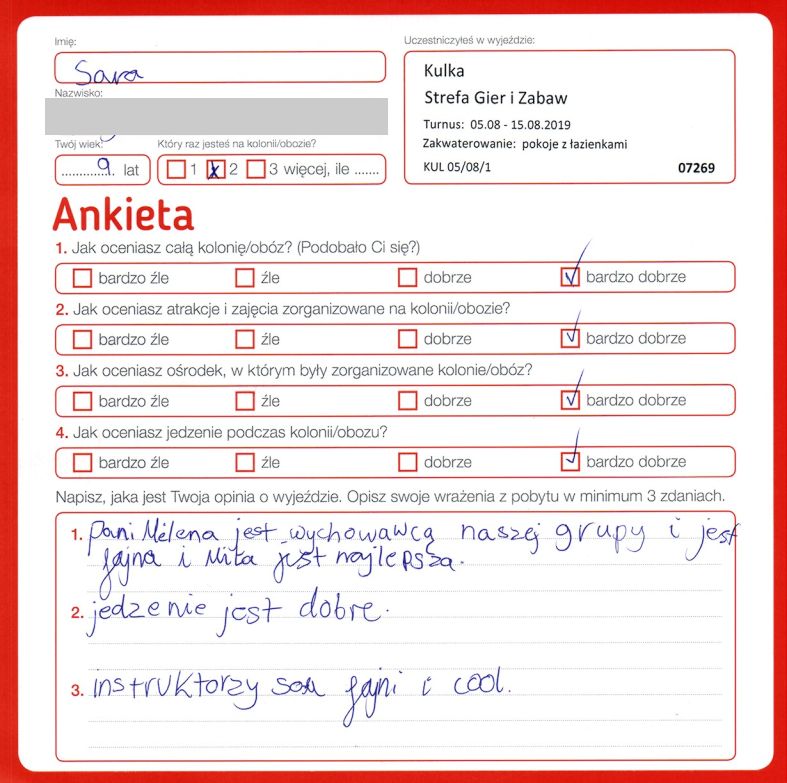 Imię:
Sara
Nazwisko:
Twój wiek:
9. lat
Który raz jesteś na kolonii/obozie?
1 x 2 3 więcej, ile .......
Uczestniczyłeś w wyjeździe:
Kulka
Strefa Gier i Zabaw
Turnus: 05.08 - 15.08.2019
Zakwaterowanie: pokoje z łazienkami
KUL 05/08/1 07269
Ankieta
1. Jak oceniasz całą kolonię/obóz? (Podobało Ci się?)
bardzo źle źle dobrze ✓ bardzo dobrze
2. Jak oceniasz atrakcje i zajęcia zorganizowane na kolonii/obozie?
bardzo źle źle dobrze ✓ bardzo dobrze
3. Jak oceniasz ośrodek, w którym były zorganizowane kolonie/obóz?
bardzo źle źle dobrze ✓ bardzo dobrze
4. Jak oceniasz jedzenie podczas kolonii/obozu?
bardzo źle źle dobrze ✓ bardzo dobrze
Napisz, jaka jest Twoja opinia o wyjeździe. Opisz swoje wrażenia z pobytu w minimum 3 zdaniach.
1. pani Milena jest wychowawcą naszej grupy i jest
fajna i miła jest najlepsza.
2. jedzenie jest dobre.
3. instruktorzy som fajni i cool.